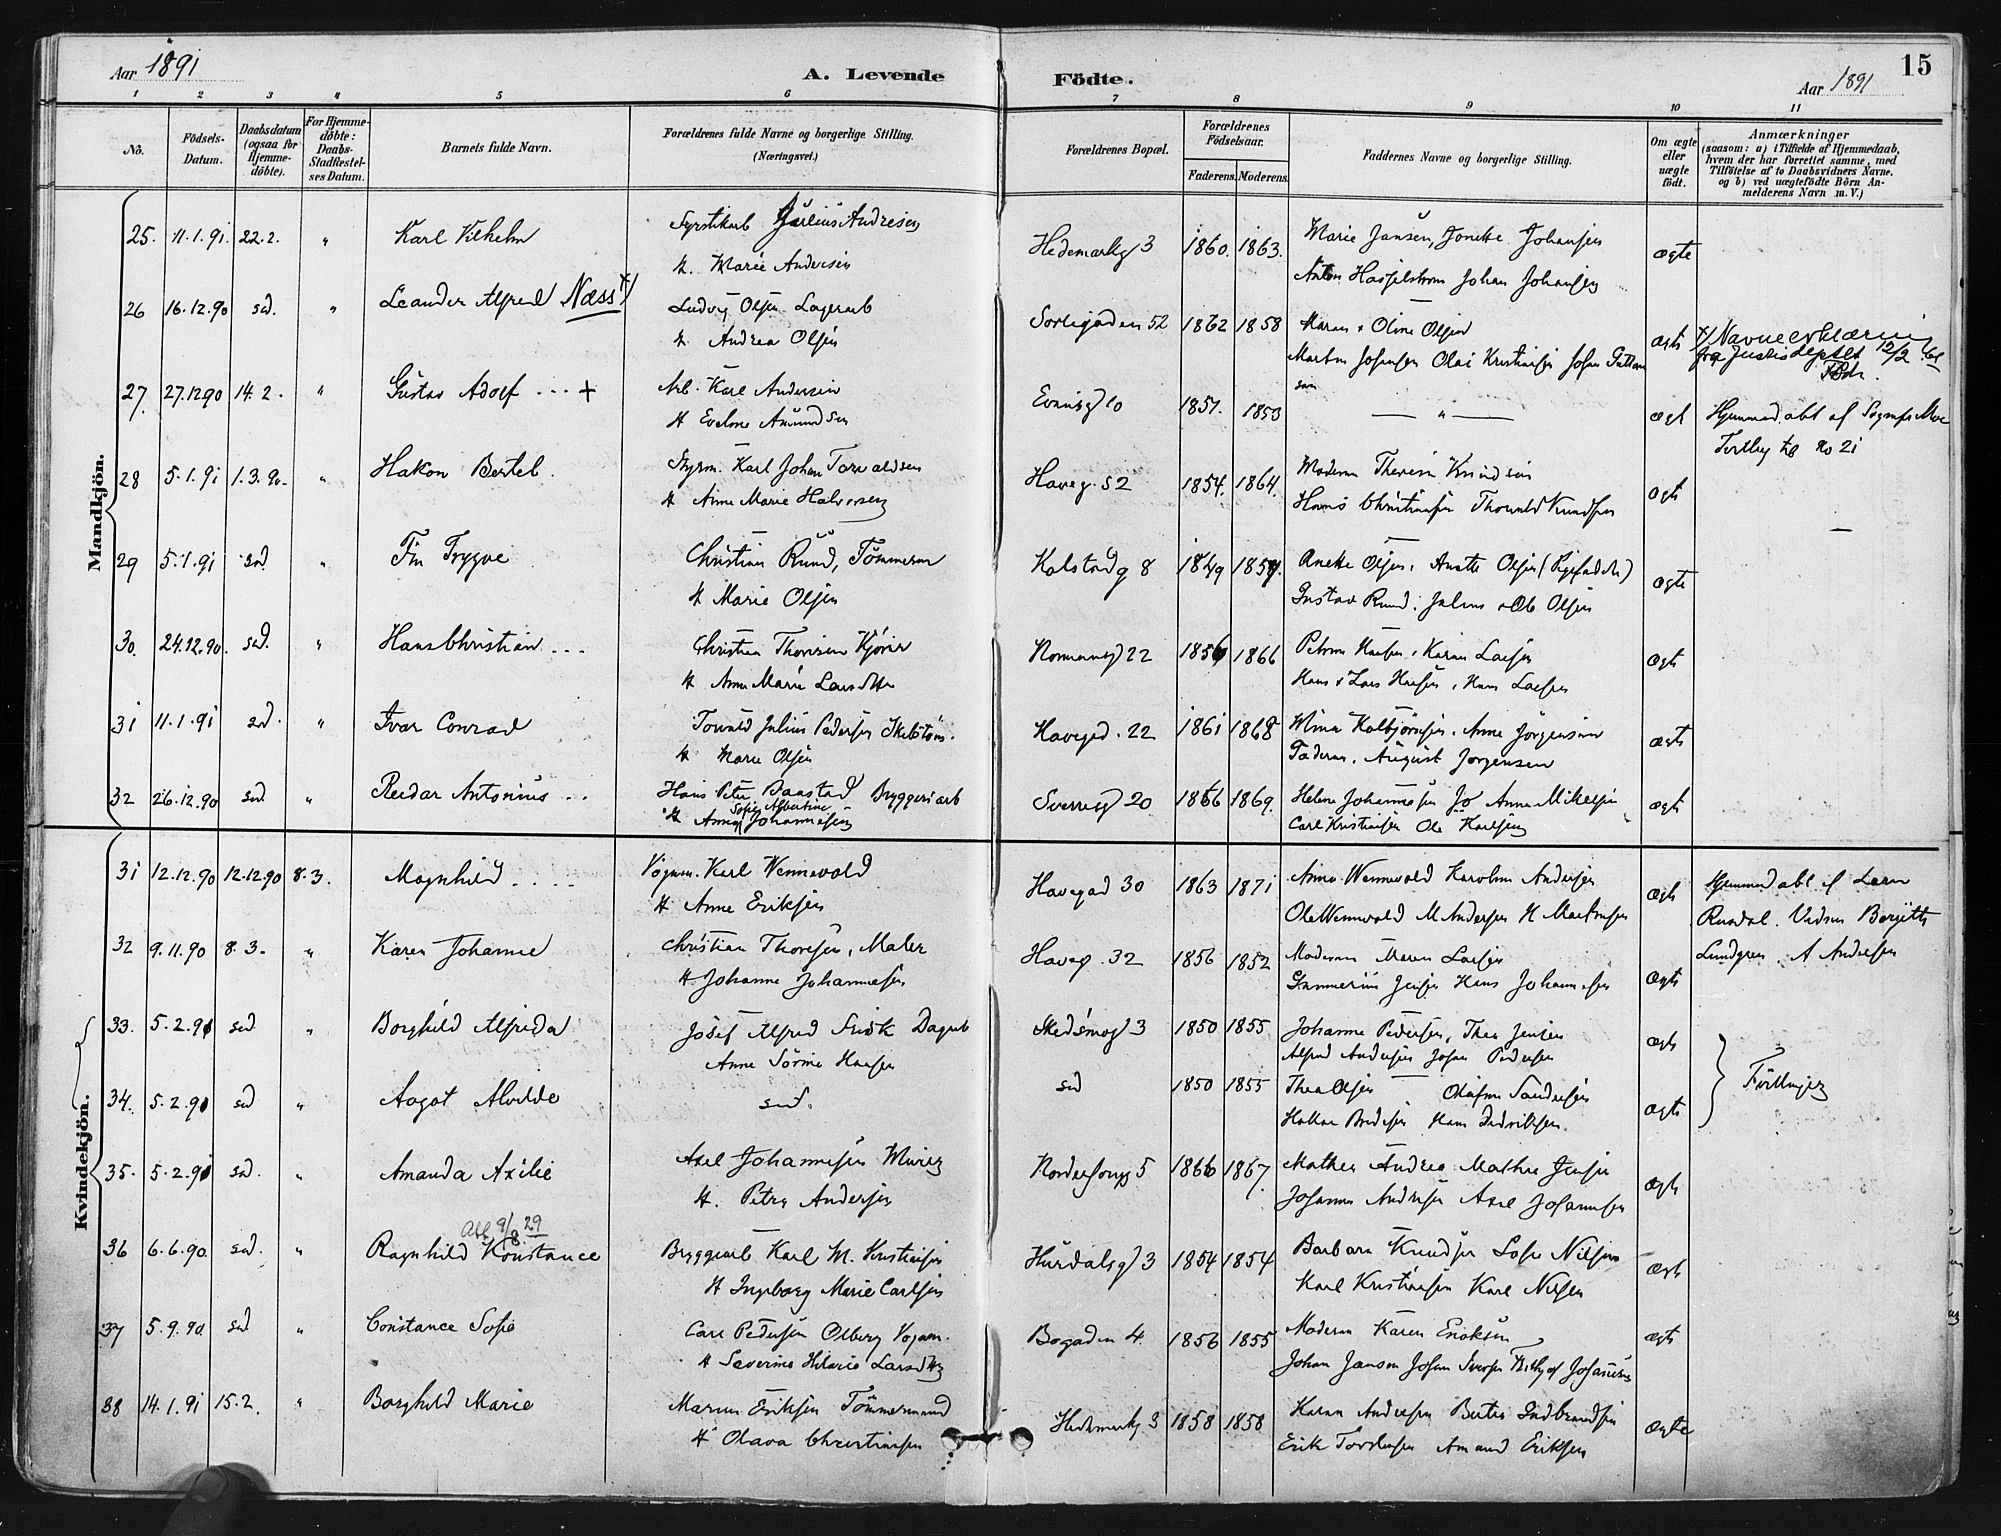 Aar 1891
A. Levende Födte.
Aar 1891
15
1 2 3 4 5 6 7 8 9 10 11
No.
Födsels-Datum.
Daabsdatum (ogsaa for Hjemmedöbte).
For Hjemmedöbte: Daabs-Stadfæstelses Datum.
Barnets fulde Navn.
Forældrenes fulde Navne og borgerlige Stilling. (Næringsvei.)
Forældrenes Bopæl.
Forældrenes Födselsaar.
Faderens. Moderens.
Faddernes Navne og borgerlige Stilling.
Om ægte eller uægte födt.
Anmærkninger
(saasom: a) i Tilfælde af Hjemmedaab, hvem der har forrettet samme, med Tilföielse af to Daabsvidners Navne. og b) ved uægtefödte Börn Anmelderens Navn m. V.)
Mandkjön.
25. 11.1.91. 22.2. " Karl Vilhelm Julius Andresen Hedemarkg 3 1860. 1863. Marie Jansen, Johansen ægte
H. Marie Andersen Anton Hasselstrøm Johan Johansen
26 16.12.90 sd. " Leander Alfred Næss x) Ludvig Olsen Lagerarb Sorligaden 52 1862 1858 Maren & Oline Olsen ægte x) Navneerklæring
H. Andrea Olsen Olai Kristiansen Johan fra Justisdeptet 12/2
27. 27.12.90 14.2. " Gustav Adolf --- + Arb. Karl Andersen 10 1857. 1853 — " — ægt Hjemmedøbt af
H Eveline Amundsen No 21
28 5.1.91 1.3.90. " Hakon Bertel. Styrm. Karl Johan Torvaldsen Haveg. 52 1854. 1864. Moderen Knudsen ægte
H Anne Marie Halvorsen Hans Christiansen Thorvald Knudsen —
29 5.1.91 sd. " Fin Trygve Christian Rund, Tømmerm Kalstadg 8 1849 1859. Olsen, Anette Olsen ægte
H Marie Olsen Gustav Rund. Julius & Ole Olsen
30. 24.12.90. sd. " Hans Christian --- Christian Thoresen Kjører Normansg 22 1856 1866 Hansen, Karen Larsen ægte
H Anne Marie Larsdtter Hans & Lars Hansen, Hans Larsen
31 11.1.91 sd. " Ivar Conrad Torvald Julius Pedersen Havegd. 22 1861 1868 Anne Jørgensen ægte
H. Marie Olsen Faderen, August Jørgensen
32 26.12.90 sd. " Reidar Antonius -- Hans Peter Baastad Bryggeriarb Sverresg 20 1866 1869. Helene Johannesen Jo Anna Mikelsen ægte
H Anna Sofie Albertine Johannesen Carl Kristiansen Ole Karlsen
Kvindekjön.
31 12.12.90 12.12.90 8.3. Magnhild Vognm. Karl Wennevold Havegad 30 1863 1871 Anna Wennevold Karoline Andersen ægte Hjemmedøbt af
H Anne Eriksen Ole Wennevold M Andersen H Martinsen
32 9.11.90 8.3. " Karen Johanne Christian Thoresen, Maler Haveg. 32 1856 1852 Moderen Maren Larsen ægte Lundgren. A Andersen
H. Johanne Johannesen Jensen Hans Johannesen
33. 5.2.91 sd " Borghild Alfrida Josef Alfred Dagarb Skedsmog 3 1850 1855 Johanne Pedersen, Thea Jensen ægte
Anne Hansen Alfred Andersen Johan Pedersen
34. 5.2.91 sd " Aagot Alvilde sd. sd 1850 1855 Thea Olsen ægte Tvillinger
35. 5.2.91 sd. " Amanda Axilie Axel Johannesen Murer 5 1866 1867 Mathea Andrea Mathea Jensen ægte
H. Petra Andersen Johannes Andersen Axel Johannesen
9/8 29
36 6.6.90. sd. " Ragnhild Konstance Bryggearb Karl M. Kristiansen Hurdalsg 3 1854 1854 Barbara Knudsen Sofie Nilsen ægte
H Ingeborg Marie Carlsen Karl Kristiansen Karl Nilsen
37 5.9.90. sd " Constance Sofie Carl Pedersen Olberg Vognm. Bogaden 4. 1856 1855 Moderen Karen Eriksen ægte
H Severine Hilarie Larsdtter Johan Jansen Johan Iversen
38 14.1.91 15.2. " Borghild Marie Eriksen Tömmermand Hedemarkg 3 1858 1858 Karen Andresen ægte
H Olava Christiansen Erik Amund Eriksen